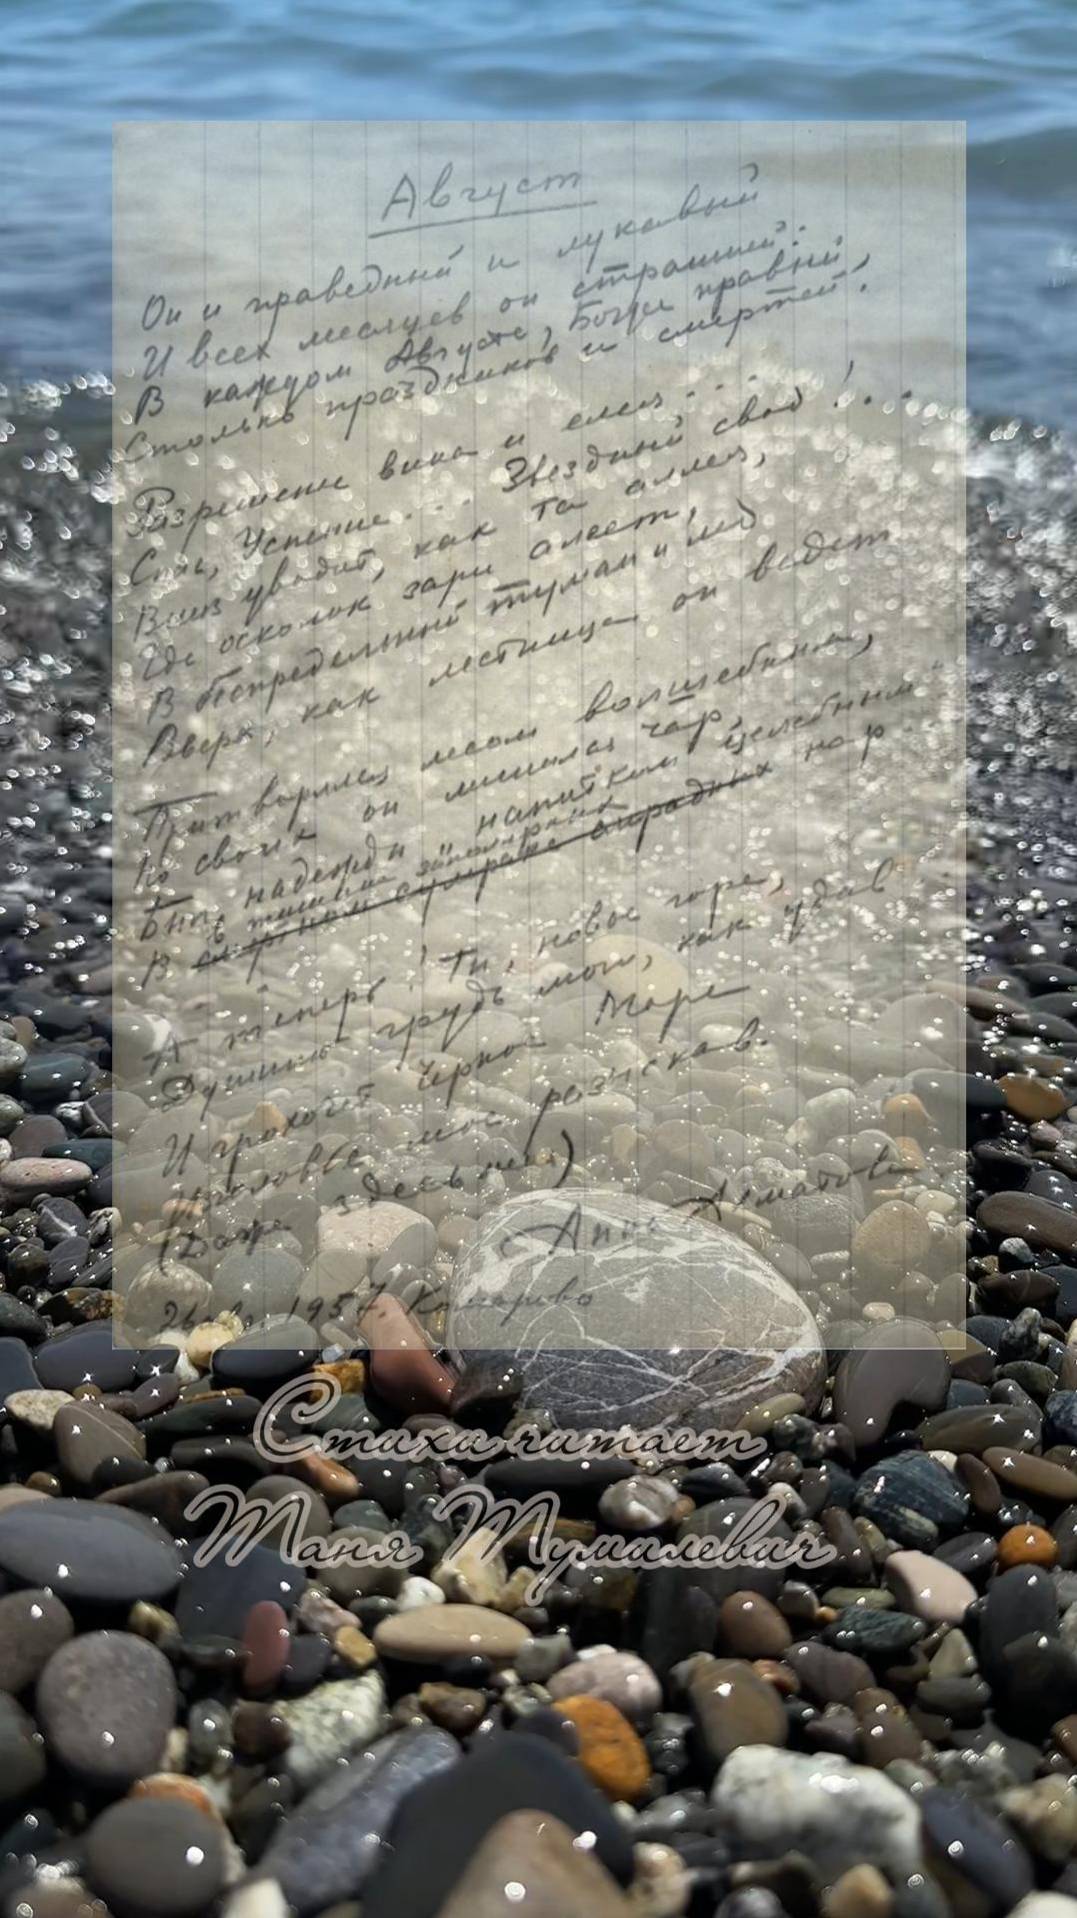 Август
Он и праведный и лукавый
И всех месяцев он страшней:
В каждом Августе, Боже правый,
Столько праздников и смертей.
Разрешенье вина и елея...
Спас, Успение... Звездный свод!...
Вниз уводит, как та аллея,
Где осколок зари алеет,
В беспредельный туман и лед
Вверх, как лестница он ведет
Притворялся лесом волшебным,
Но своих он лишился чар,
Был надежды напитком целебным
в тишине заполярных
В сумраке нар
А теперь! Ты, новое горе,
Душишь грудь мою, как удав
И грохочет Черное Море
Изголовье мое разыскав.
(Даже здесь)
Анна Ахматова
1957 Комарово
Стихи читает
Таня Тумилевич